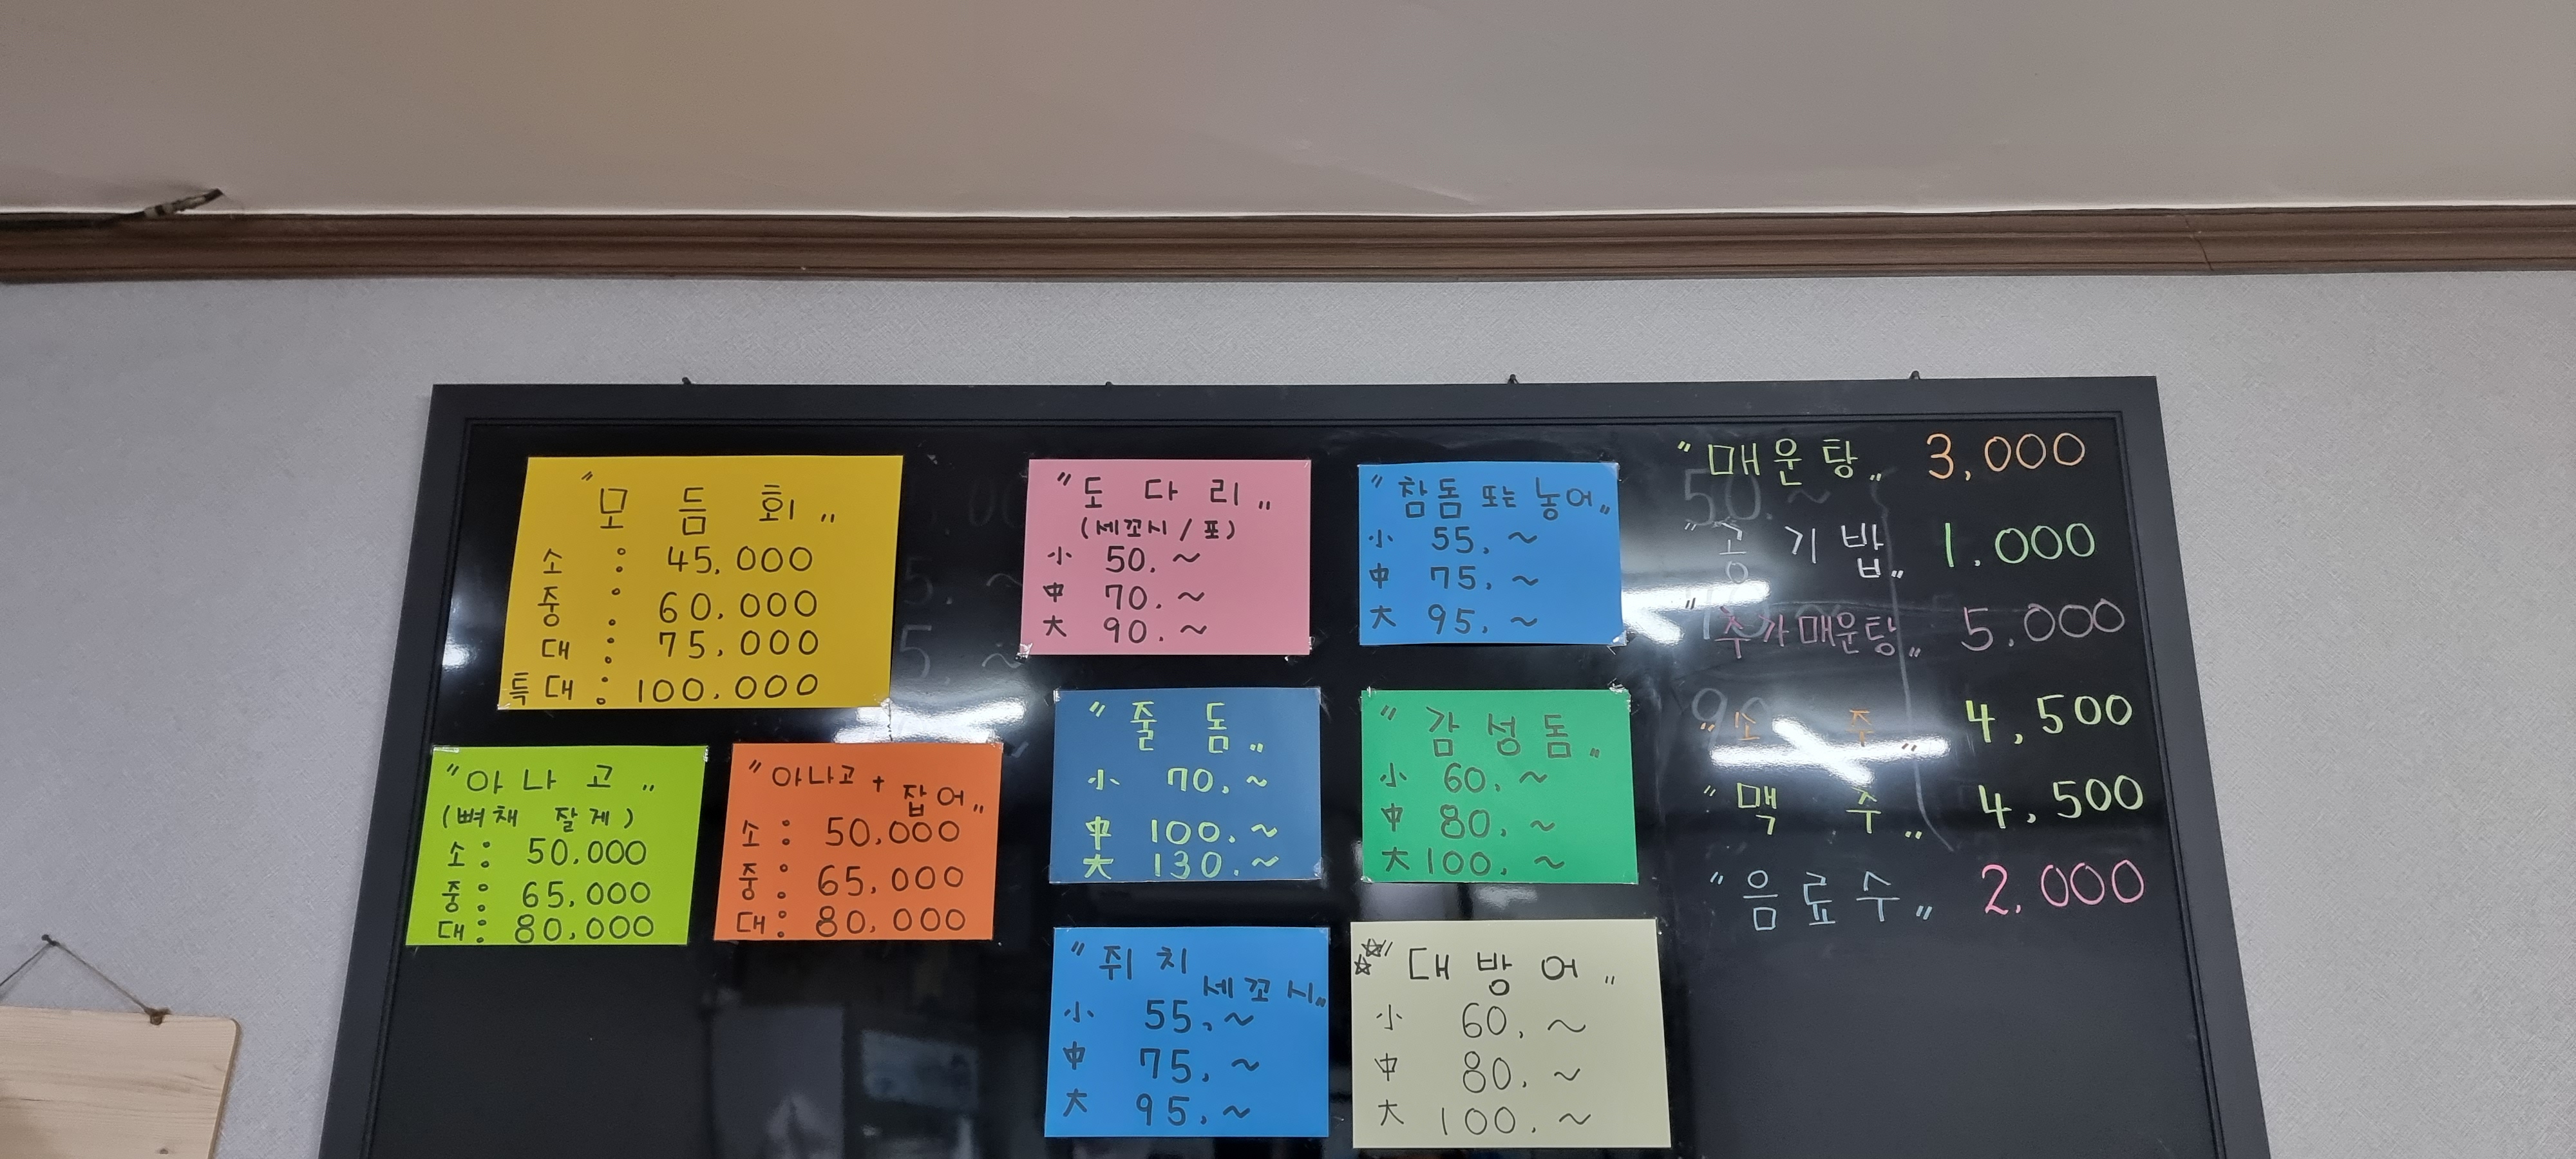 "모듬회"
소 : 45,000
중 : 60,000
대 : 75,000
특대 : 100,000
"아나고"
(뼈채 잘게)
소 : 50,000
중 : 65,000
대 : 80,000
"아나고 + 잡어"
소 : 50,000
중 : 65,000
대 : 80,000
"도다리"
(세꼬시/포)
小 50.~
中 70.~
大 90.~
"참돔 또는 농어"
小 55.~
中 75.~
大 95.~
"줄돔"
小 70.~
中 100.~
大 130.~
"감성돔"
小 60.~
中 80.~
大 100.~
"쥐치
세꼬시"
小 55.~
中 75.~
大 95.~
"대방어"
小 60.~
中 80.~
大 100.~
"매운탕" 3,000
"공기밥" 1,000
"추가매운탕" 5,000
"소주" 4,500
"맥주" 4,500
"음료수" 2,000